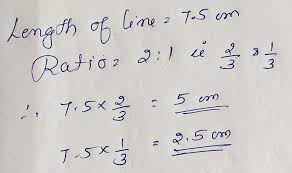 Length of line = 7.5 cm
Ratio = 2:1 ie 2/3 & 1/3
∴ 7.5 × 2/3 = 5 cm
7.5 × 1/3 = 2.5 cm